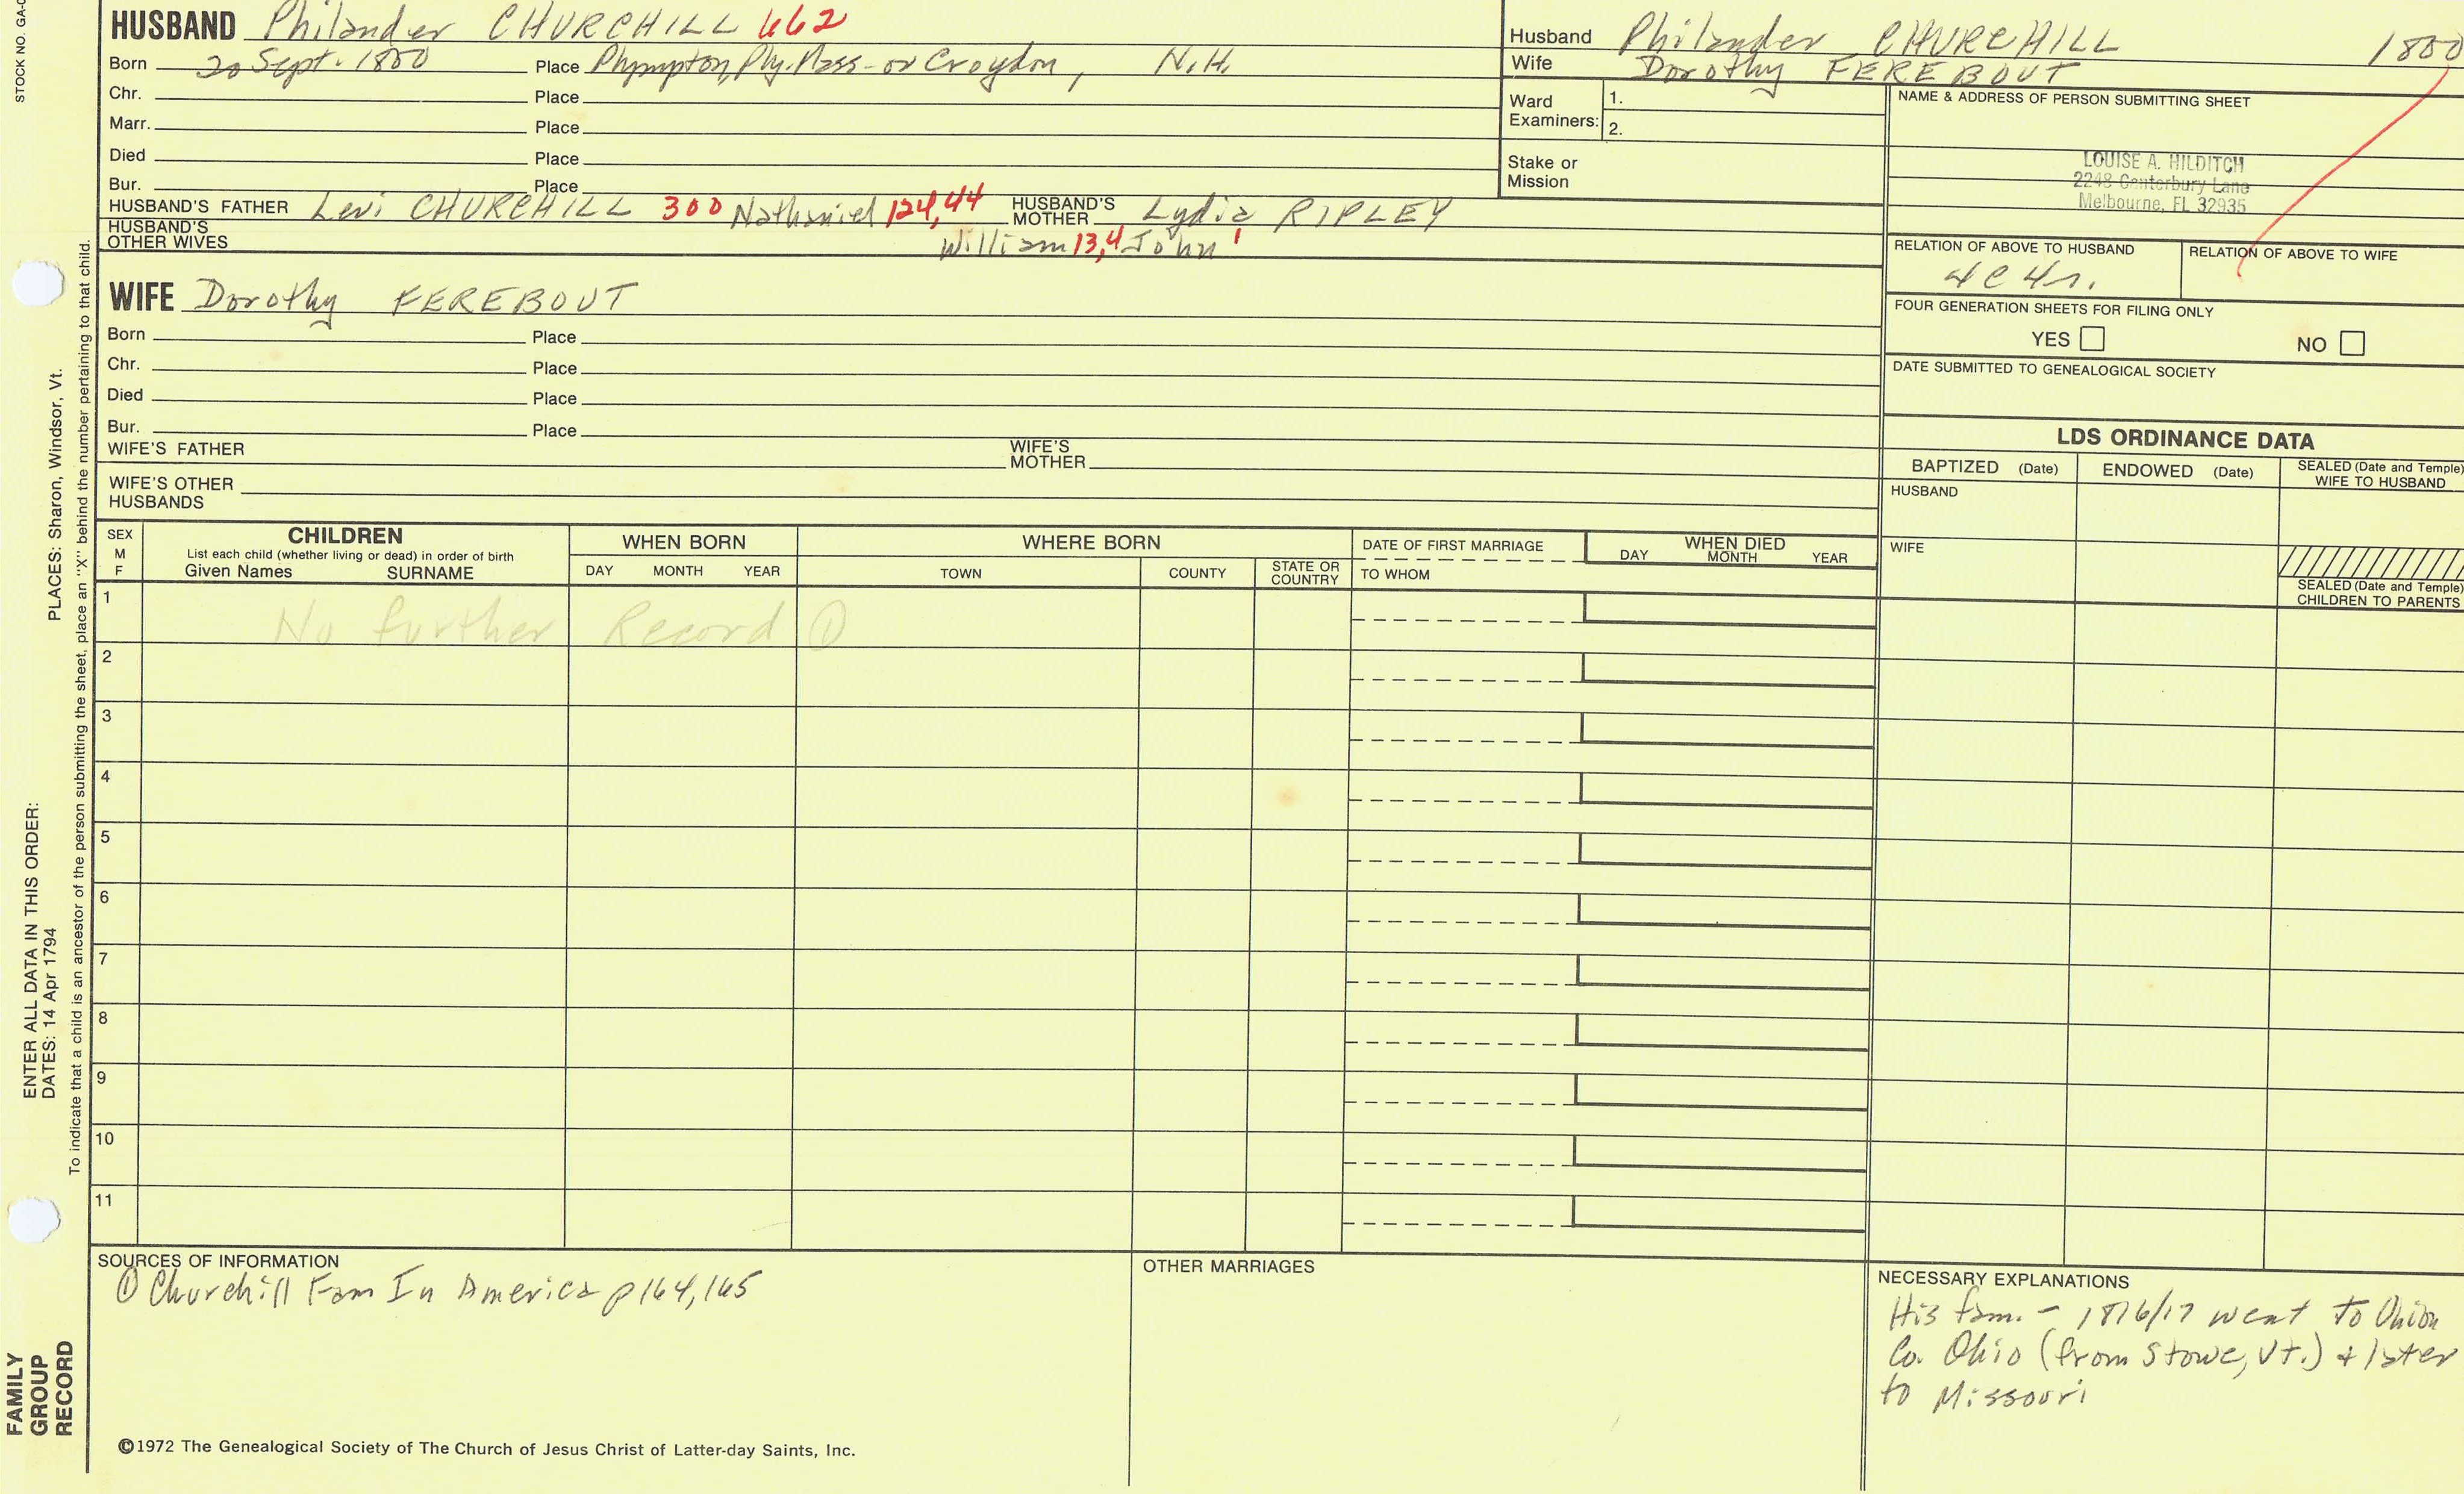 STOCK NO. GA-0
HUSBAND Philander CHURCHILL 662
Born 20 Sept. 1800 Place Plympton, Ply. Mass - or Croydon, N.H.
Chr. Place
Marr. Place
Died Place
Bur. Place
HUSBAND'S FATHER Levi CHURCHILL 300 Nathaniel 124,44 HUSBAND'S MOTHER Lydia RIPLEY
HUSBAND'S OTHER WIVES William 13,4 John 1
Husband Philander CHURCHILL 1800
Wife Dorothy FEREBOUT
Ward Examiners: 1.
2.
Stake or Mission
NAME & ADDRESS OF PERSON SUBMITTING SHEET
LOUISE A. HILDITCH
2248 Canterbury Lane
Melbourne, FL 32935
RELATION OF ABOVE TO HUSBAND RELATION OF ABOVE TO WIFE
4C4r.
FOUR GENERATION SHEETS FOR FILING ONLY
YES NO
DATE SUBMITTED TO GENEALOGICAL SOCIETY
WIFE Dorothy FEREBOUT
Born Place
Chr. Place
Died Place
Bur. Place
WIFE'S FATHER WIFE'S MOTHER
WIFE'S OTHER HUSBANDS
LDS ORDINANCE DATA
BAPTIZED (Date) ENDOWED (Date) SEALED (Date and Temple) WIFE TO HUSBAND
HUSBAND
WIFE
SEALED (Date and Temple) CHILDREN TO PARENTS
SEX M F
CHILDREN
List each child (whether living or dead) in order of birth
Given Names SURNAME
WHEN BORN
DAY MONTH YEAR
WHERE BORN
TOWN COUNTY STATE OR COUNTRY
DATE OF FIRST MARRIAGE
TO WHOM
WHEN DIED
DAY MONTH YEAR
1 No further Record ①
2
3
4
5
6
7
8
9
10
11
SOURCES OF INFORMATION
① Churchill Fam In America p 164, 165
OTHER MARRIAGES
NECESSARY EXPLANATIONS
His fam. - 1816/17 went to Union
Co. Ohio (from Stowe, Vt.) + later
to Missouri
©1972 The Genealogical Society of The Church of Jesus Christ of Latter-day Saints, Inc.
FAMILY
GROUP
RECORD
ENTER ALL DATA IN THIS ORDER:
DATES: 14 Apr 1794
PLACES: Sharon, Windsor, Vt.
To indicate that a child is an ancestor of the person submitting the sheet, place an "X" behind the number pertaining to that child.